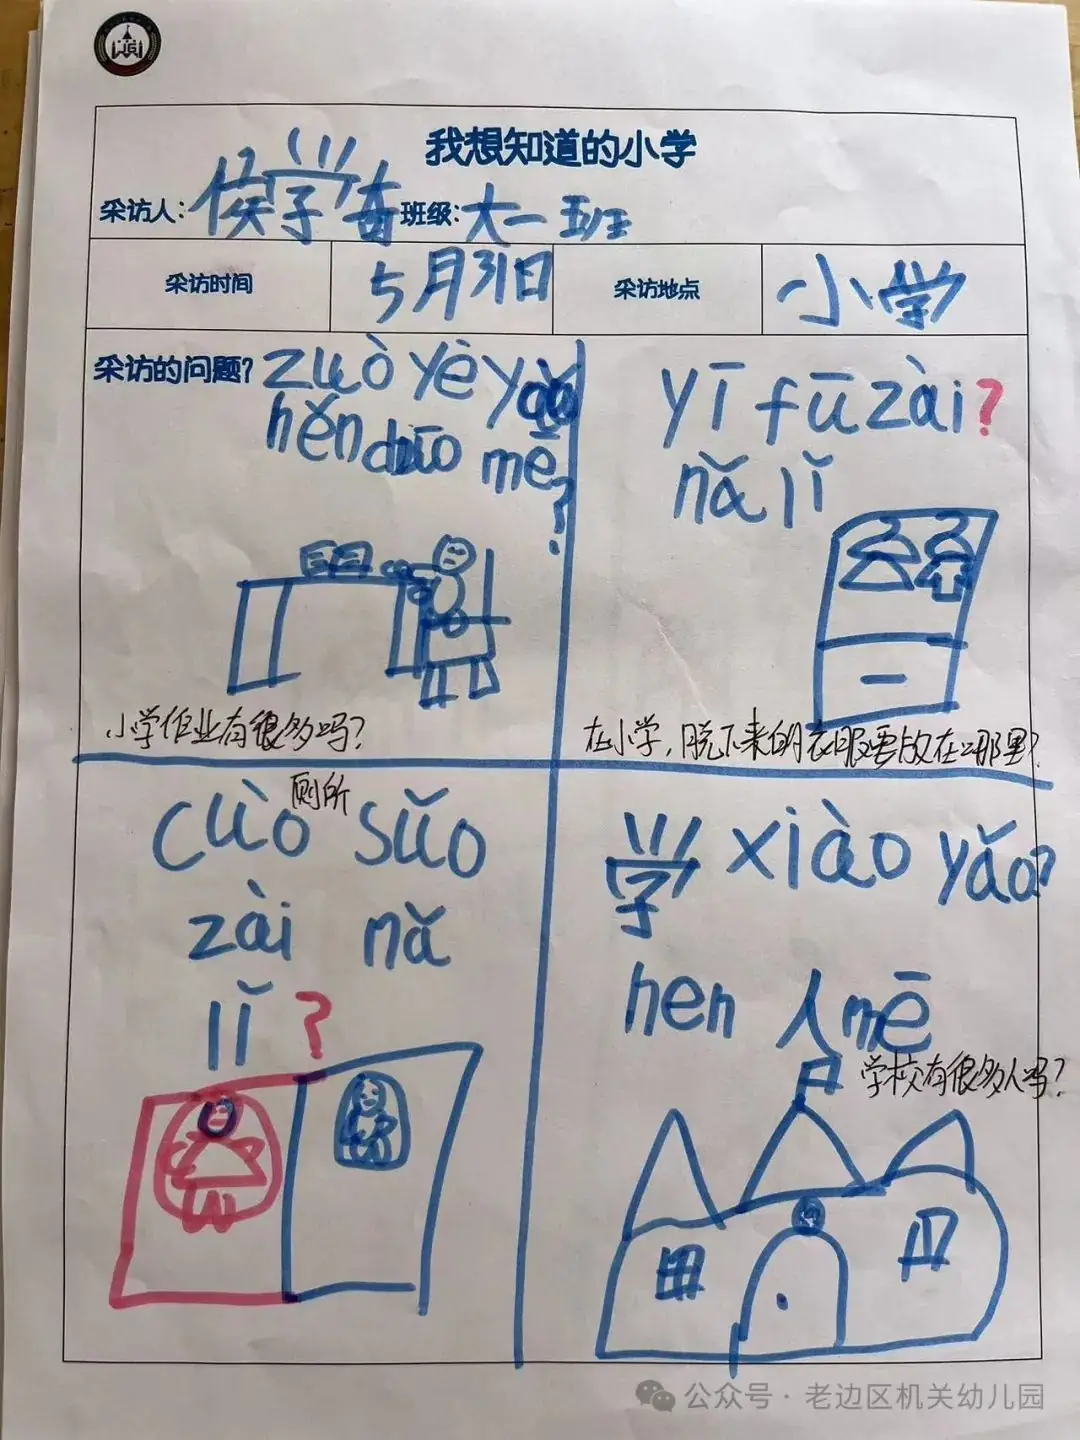 我想知道的小学
采访人：侯学香 班级：大一班
采访时间 5月31日 采访地点 小学
采访的问题？ zuò yè yǎo
hěn duō mē
?
小学作业有很多吗？
yī fū zài ?
nǎ lǐ
在小学，脱下来的衣服要放在哪里？
cuò 厕所 sǔo
zài nǎ
lǐ ?
学 xiào yǎo?
hen 人 mē
学校有很多人吗？
公众号 · 老边区机关幼儿园